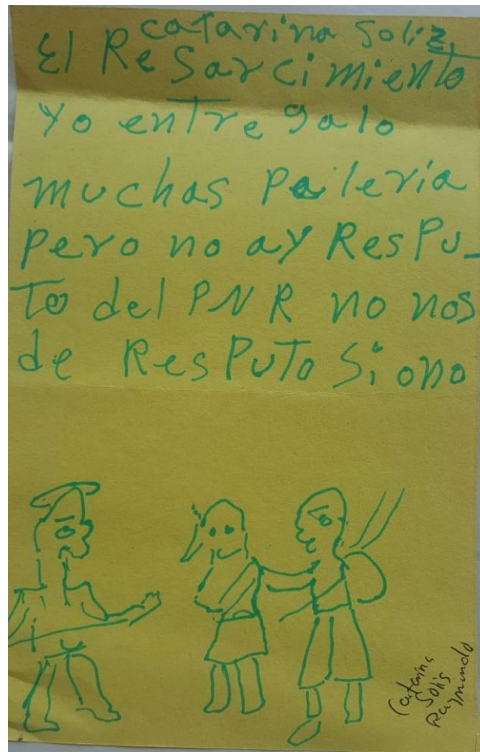 catarina Soliz
El ReSarcimiento
Yo entregalo
muchas Paileria
Pero no ay ResPu-
To del PNR no nos
de ResPuTo Si ono
Catarina
Solis
Raymundo